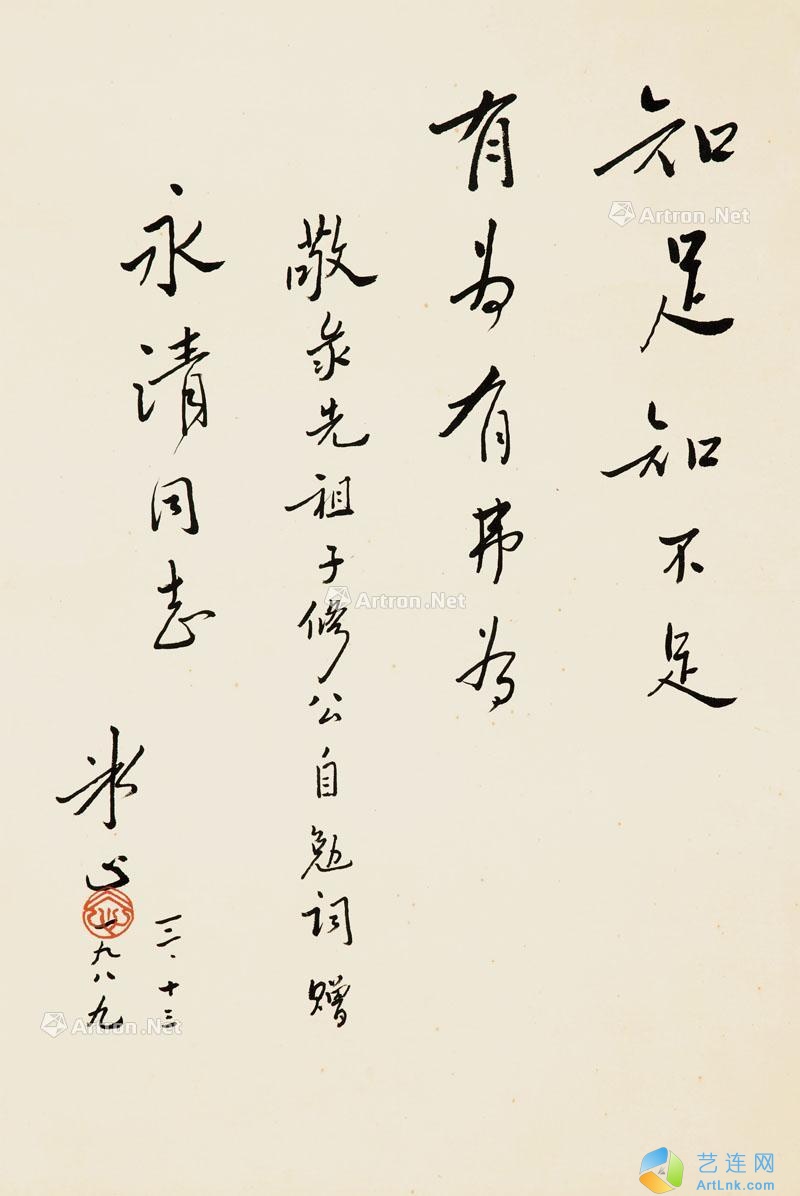 知足知不足
有为有弗为
敬录先祖子修公自勉词赠
永清同志
冰心
一九八九
十三
Artron.Net
Artron.Net
Artron.Net
艺连网
ArtLnk.com